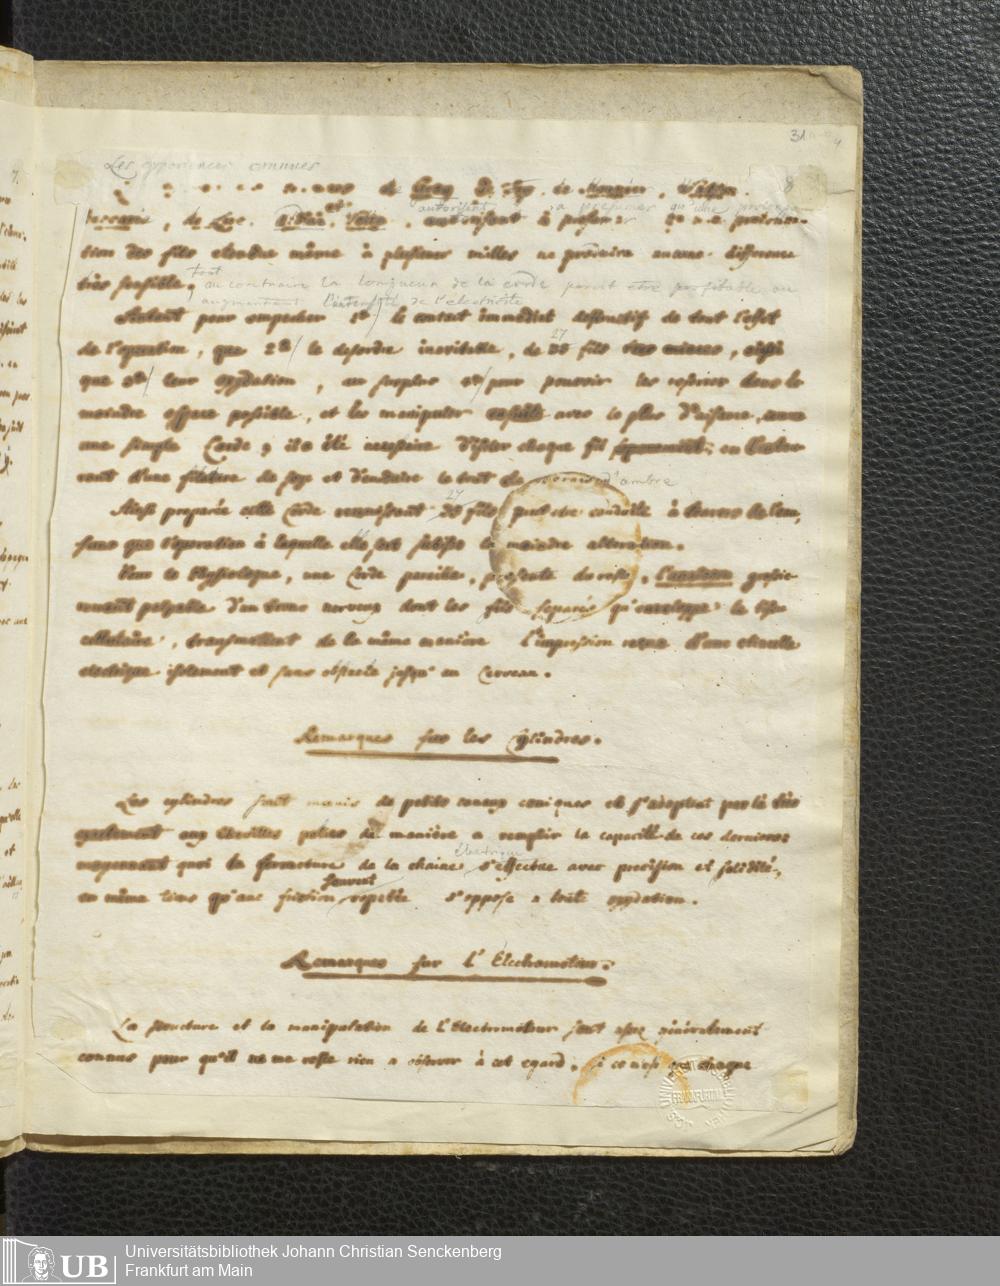 31
Les experiences connues
8
de Gray, D. Fay, de Monnier, Watson
et
autorisent a presumer qu'une prolonga
Beccaria, de Luc, Volta, autorisent à presumer
tion des fils etendue même à plusieurs milles ne produise aucune difference
très sensible,
tout au contraire la longueur de la corde paroit etre profitable en
augmentant l'intensité de l'electricité
Autant pour empecher 1º/ le contact immédiat destructif de tout l'effet
27
de l'operation, que 2º/ le desordre inevitable, de 35 fils très minces, ainsi
que 3º/ leur oxydation, au surplus 4º/ pour pouvoir les resserrer dans le
moindre espace possible, et les manipuler ensuite avec le plus d'aisance, comme
une simple Corde; il a été necessaire d'isoler chaque fil en l'entou
rant d'une filature de soye et d'enduire le tout de vernis d'ambre
27
Ainsi preparée cette Corde reunissant 35 fils peut etre conduite à travers de l'eau,
sans que l'operation à laquelle elle sert subisse la moindre alteration.
Pour le Physiologue, une Corde pareille, presente du reste, l'analogue
palpable d'un tronc nerveux dont les fils separés qu'enveloppe le tissu
cellulaire, transmettent de la même manière l'impression reçue d'une etincelle
electrique isolement et sans obstacle jusqu'au Cerveau.
Remarques sur les Cylindres.
Les cylindres sont munis de petits tenons coniques et s'adaptent par là très
exactement aux chevilles polies de manière a remplir la capacité de ces dernieres
électrique
moyennant quoi la fermeture de la chaine s'effectue avec precision et solidité,
souvent
en même tems qu'une friction repetée s'oppose a toute oxydation.
Remarques sur l'Electromoteur.
La structure et la manipulation de l'Electromoteur sont assez généralement
connus pour qu'il ne me reste rien a observer à cet egard, si ce n'est que chaque
UB
Universitätsbibliothek Johann Christian Senckenberg
Frankfurt am Main